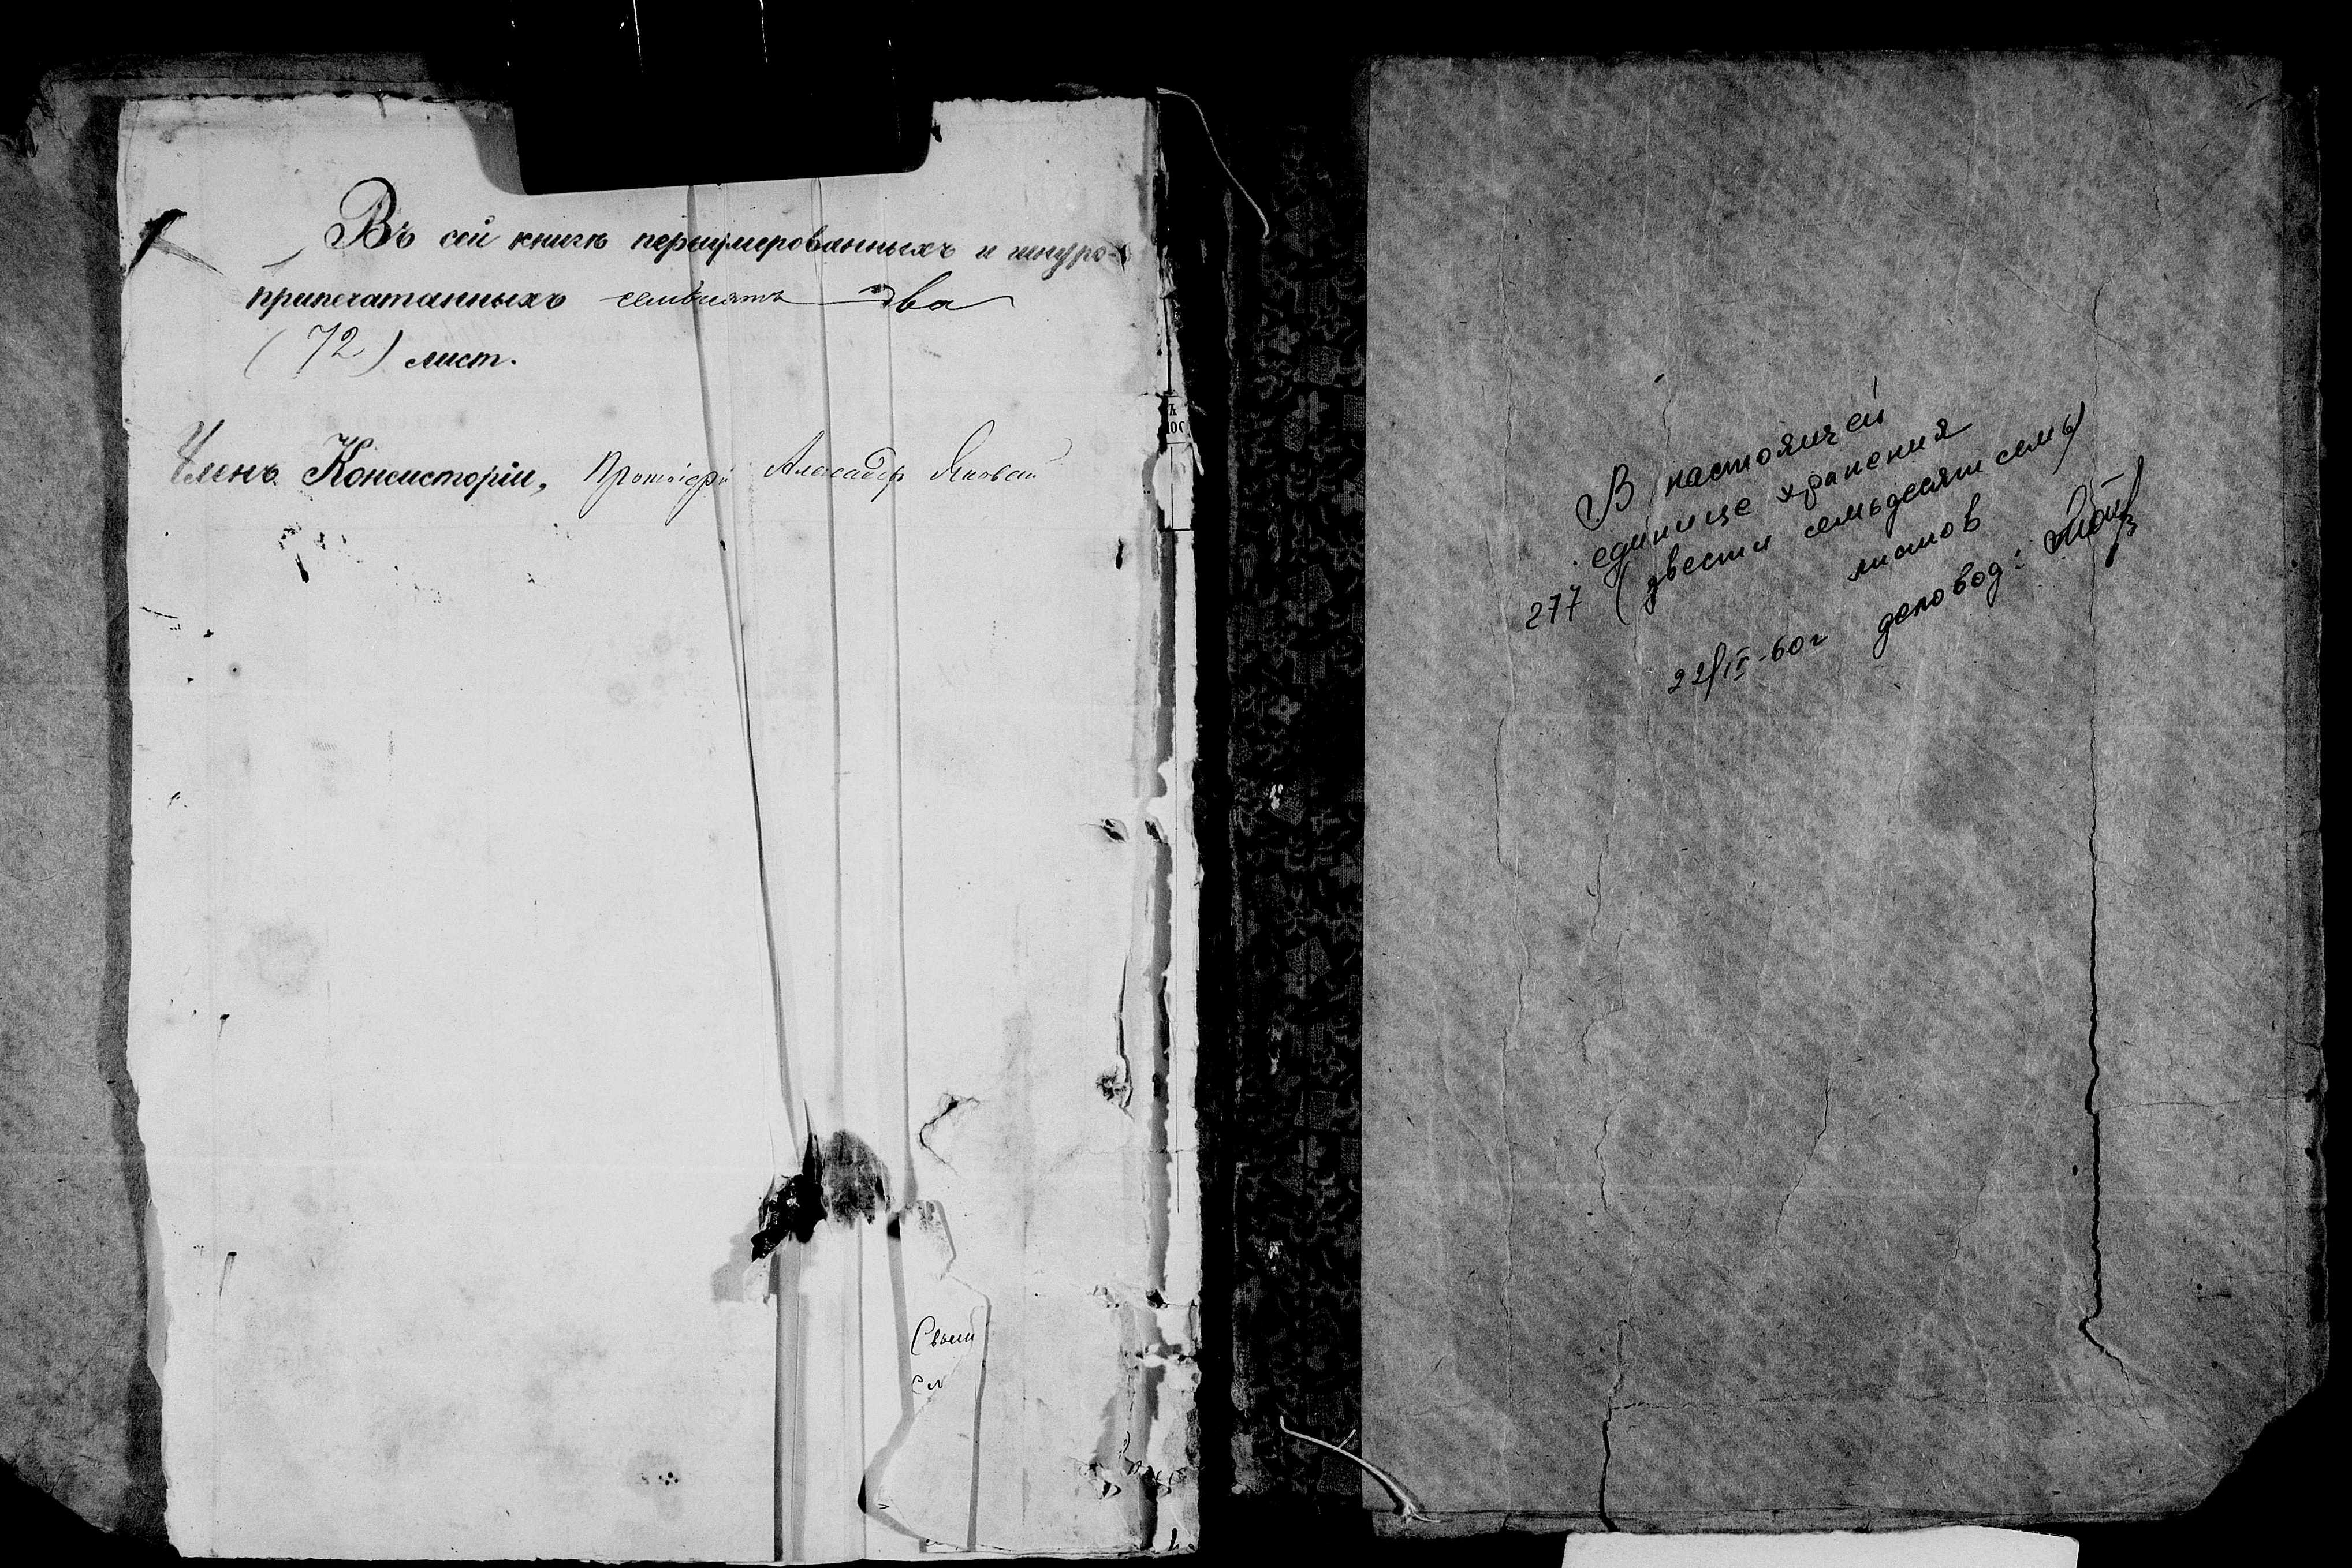 Въ сей книгѣ перенумерованныхъ и шнуро-
припечатанныхъ семьдесятъ два
(72) лист.
Членъ Консисторіи, Протоіерей Александръ
Свящ
В настоящей
единице хранения
277 (двести семьдесят семь)
листов
22/IV-60г деловод: